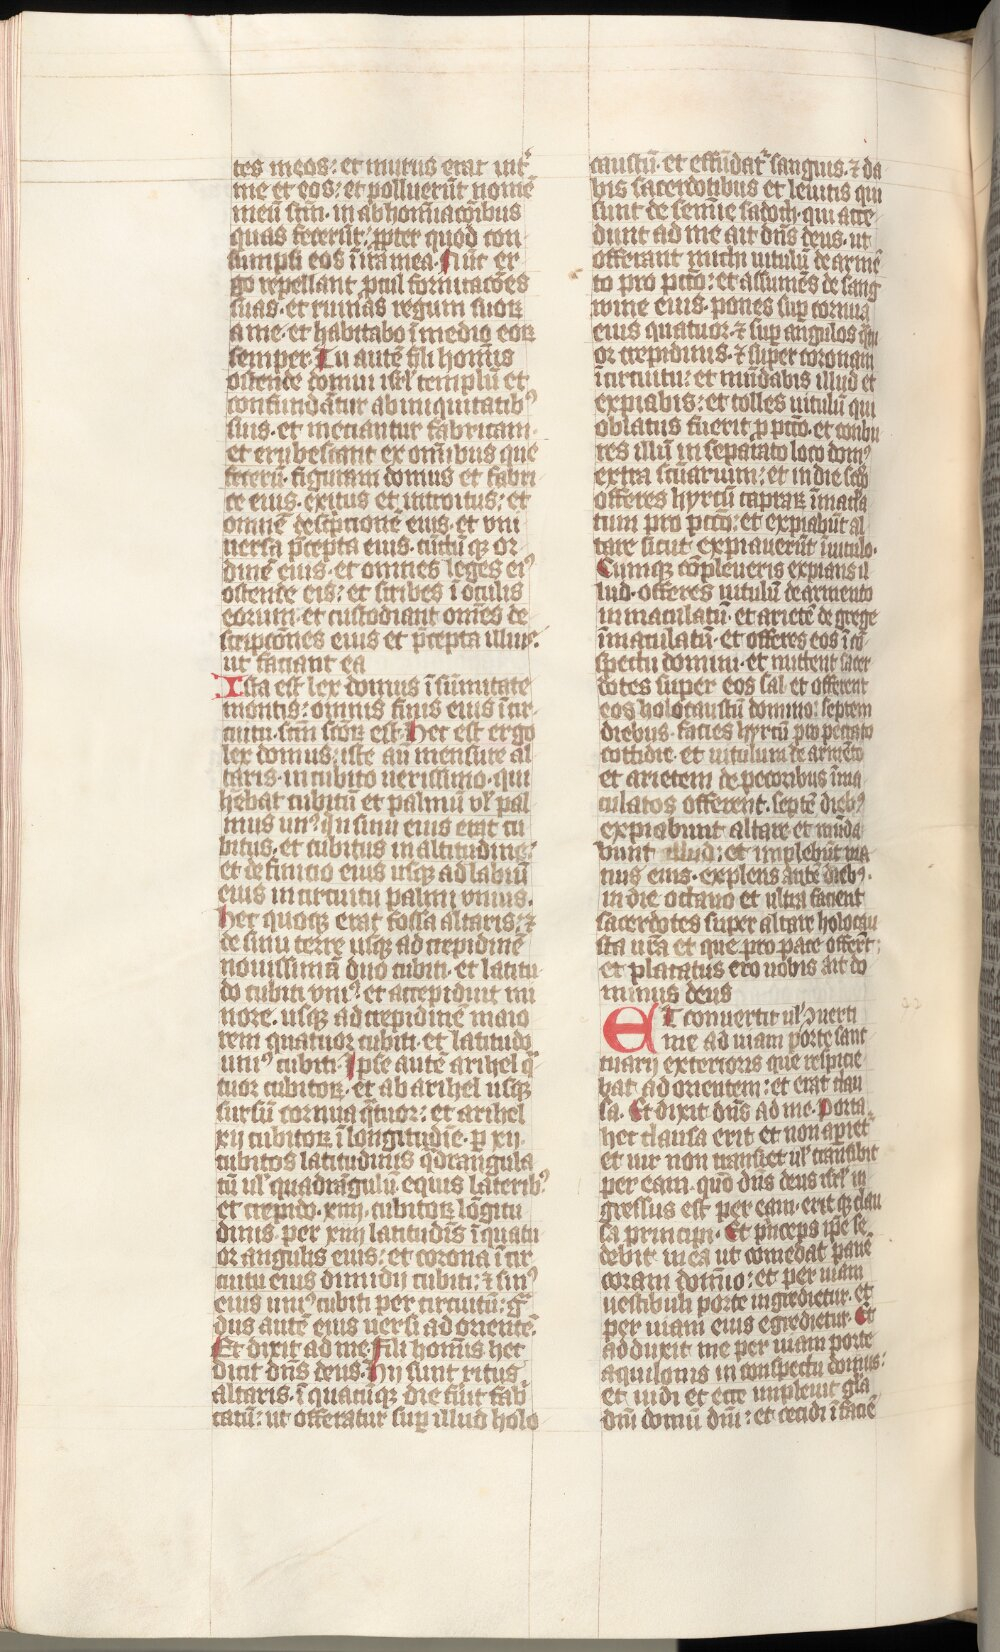 tes meos: et murus erat int̄
me et eos: et polluerūt nomē
meū sctm̄. in abhoīacōibus
quas fecerūt: ꝓpter quod con
sumpsi eos ī ira mea. Nūc er
go repellant ꝓcul fornicacōes
suas. et ruinas regum suoꝝ
a me. et habitabo ī medio eoꝝ
semper. Tu autē fili homīs
ostende domui isrl̄ templū et
confundātur ab iniquitatibꝰ
suis. et meciantur fabricam.
et erubescant ex om̄ibus que
fecerūt. figuram domus et fabri
ce eius. exitus et introitus: et
omnē descpcionē eius. et uni
uersa p̄cepta eius. cūctū qꝫ or
dinē eius. et omnes leges eiꝰ
ostende eis: et scribes ī oculis
eorum. et custodiant om̄es de
scripcōnes eius et p̄cepta illius.
ut faciant ea
Ista est lex domus ī sūmitate
montis: omnis finis eius ī cir
cuitu. sctm̄ sctōꝝ est. Hec est ergo
lex domus. iste aūt mensure al
taris. in cubito uerissimo. qui
hēbat cubitū et palmū. ul̄ pal
mus unꝰ. qui sinu eius erat cu
bitus. et cubitus in altitudine:
et definicio eius usqꝫ ad labiū
eius in circuitu palmi unius.
Hec quoqꝫ erat fossa altaris: ⁊
de sinu terre usqꝫ ad crepidinē
nouissimā duo cubiti. et latitu
do cubiti uniꝰ. et a crepidine mi
nore. usqꝫ ad crepidinē maio
rem quatuor cubiti. et latitudo
uniꝰ cubiti. Ipse autē arihel q̄
tuor cubitoꝝ. et ab arihel usqꝫ
sursū cornua q̄tuor: et arihel
xij cubitoꝝ ī longitudīe. ꝑ xij.
cubitos latitudinis q̄drangula
tū ul̄ quadrāgulū equis lateribꝰ
et crepido. xiiij. cubitoꝝ lōgitu
dinis. per xiiij latitudīs ī quatu
or angulis eius: et corona ī cir
cuitu eius dimidij cubiti: ⁊ sinꝰ
eius uniꝰ cubiti per circuitū: g̃
dus autē eius uersi ad oriente.
Et dixit ad me. Fili homīs hec
dicit dn̄s deus. Hij sunt ritus
altaris. ī quacūqꝫ die fūit fab̄
catū: ut offeratur suꝑ illud holo
caustū. et effūdat̄ sanguis. ⁊ da
bis sacerdotibus et leuitis qui
sunt de semīe sadoch. qui acce
dunt ad me ait dn̄s deus. ut
offerant michi uitulū de armē
to pro pctō: et assumēs de sang
wine eius. pones suꝑ cornua
eius quatuor. ⁊ suꝑ angulos q̄tu
or crepidinis. ⁊ super coronam
ī circuitu: et mūdabis illud et
expiabis: et tolles uitulū qui
oblatus fuerit ꝓ pctō. et conbu
res illū in separato loco domꝰ
extra sctūarium: et in die scdo
offeres hyrcū capraꝝ īmacla
tum pro pctō: et expiabūt al
tare sicut expiauerūt ī uitulo.
Cumqꝫ cōpleueris expians il
lud. offeres uitulū de armento
inmaculatū. et arietē de grege
īmaculatū. et offeres eos ī cō
spectu domini. et mittent sacer
dotes super eos sal. et offerent
eos holocaustū domino: septem
diebus. facies hyrcū pro peccato
cottidie. et uitulum de armēto
et arietem de pecoribus īma
culatos offerent. septē diebꝰ
expiabunt altare et mūda
bunt illud: et implebūt ma
nus eius. expletis autē diebꝰ.
in die octauo et ultra facient
sacerdotes super altare holocau
sta ur̄a et que pro pace offerūt:
et placatus ero uobis ait do
minus deus
ET conuertit ul̄ ꝯuerti
me ad uiam porte sanc
tuarij exterioris que respicie
bat ad orientem: et erat clau
sa. Et dixit dn̄s ad me. Porta
hec clausa erit et non apiet̄
et uir non transiet ul̄ transibit
per eam. quō dn̄s deus isrl̄ in
gressus est per eam. erit qꝫ clau
sa principi. Et p̄nceps ip̄e se
debit in ea ut comedat panē
coram domīo: et per uiam
uestibuli porte ingredietur. et
per uiam eius egredietur. Et
adduxit me per uiam porte
aquilonis in conspectu domus:
et uidi et ecce impleuit gl̄a
dn̄i domū dn̄i: et cecidi ī faciē